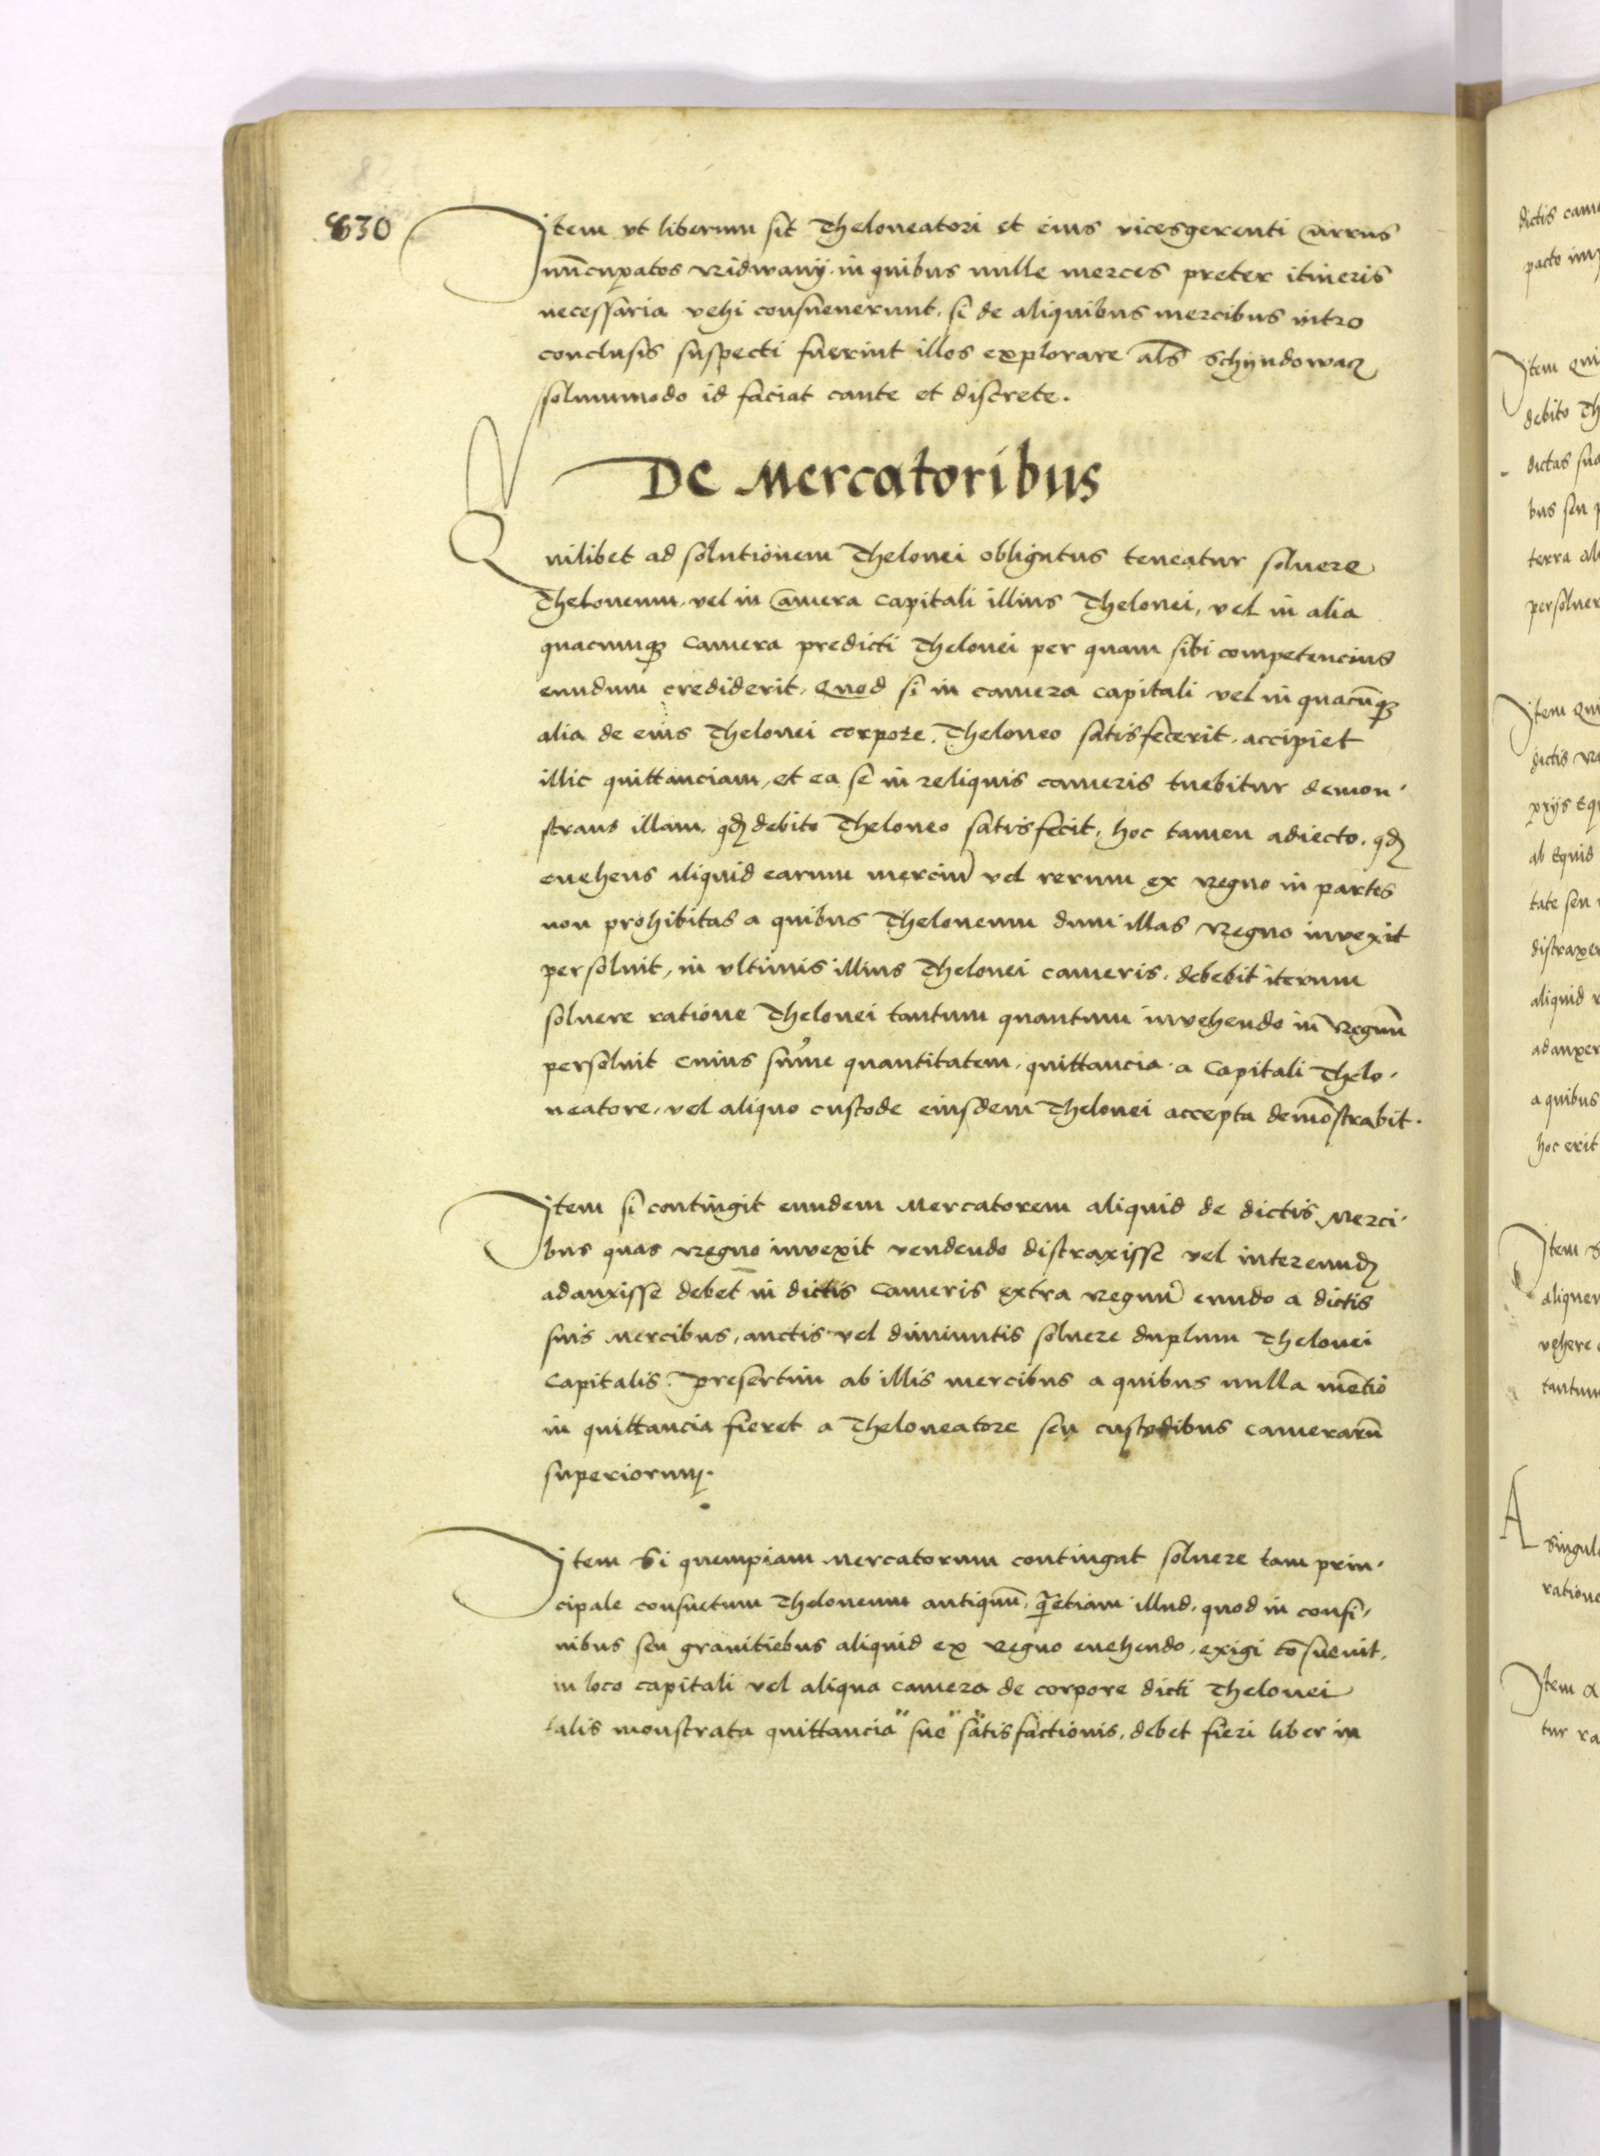 830
Item vt liberum sit Theloneatori et eius vicesgerenti Currus
nu̅cupatos Ridwanÿ in quibus nulle merces preter itineris
necessaria vehi consueuerunt, si de aliquibus mercibus intro
conclusis suspecti fuerint illos explorare al̅s Schÿndowacz
solummodo id faciat caute et discrete.
De Mercatoribus
Quilibet ad solutionem Thelonei obligatus teneatur soluere
Theloneum, vel in Camera capitali illius Thelonei, vel in alia
quacumqꝫ Camera predicti Thelonei per quam sibi competencius
eundum crediderit, Quod si in camera capitali vel in quacu̅qꝫ
alia de eius Thelonei corpore, Theloneo satisfecerit, accipiet
illic quittanciam, et ea se in reliquis cameris tuebitur demon-
strans illam, qđ debito Theloneo satisfecit, hoc tamen adiecto, qđ
euehens aliquid earum merciu̅ vel rerum ex Regno in partes
non prohibitas a quibus Theloneum dum illas Regno inuexit
persoluit, in vltimis illius Thelonei cameris, debebit iterum
soluere ratione Thelonei tantum quantum inuehendo in Regnu̅
persoluit Cuius sum̅e quantitatem, quittancia a Capitali Thelo-
neatore, vel aliquo custode eiusdem Thelonei accepta demo̅strabit.
Item si contingit eundem Mercatorem aliquid de dictis Merci-
bus quas Regno inuexit vendendo distraxisse vel interemdo
adauxisse debet in dictis Cameris extra Regnu̅ eundo a dictis
suis Mercibus, auctis vel diminutis soluere duplum Thelonei
Capitalis Presertim ab illis mercibus a quibus nulla me̅tio
in quittancia fieret a Theloneatore seu custodibus cameraru̅
superiorum.
Item Si quempiam Mercatorum contingat soluere tam prin-
cipale consuetum Theloneum antiquu̅, qua̅ etiam illud, quod in confi-
nibus seu granitiebus aliquid ex Regno euehendo, exigi co̅sueuit,
in loco capitali vel aliqua camera de corpore dicti Thelonei
talis monstrata quittancia sue satisfactionis, debet fieri liber in